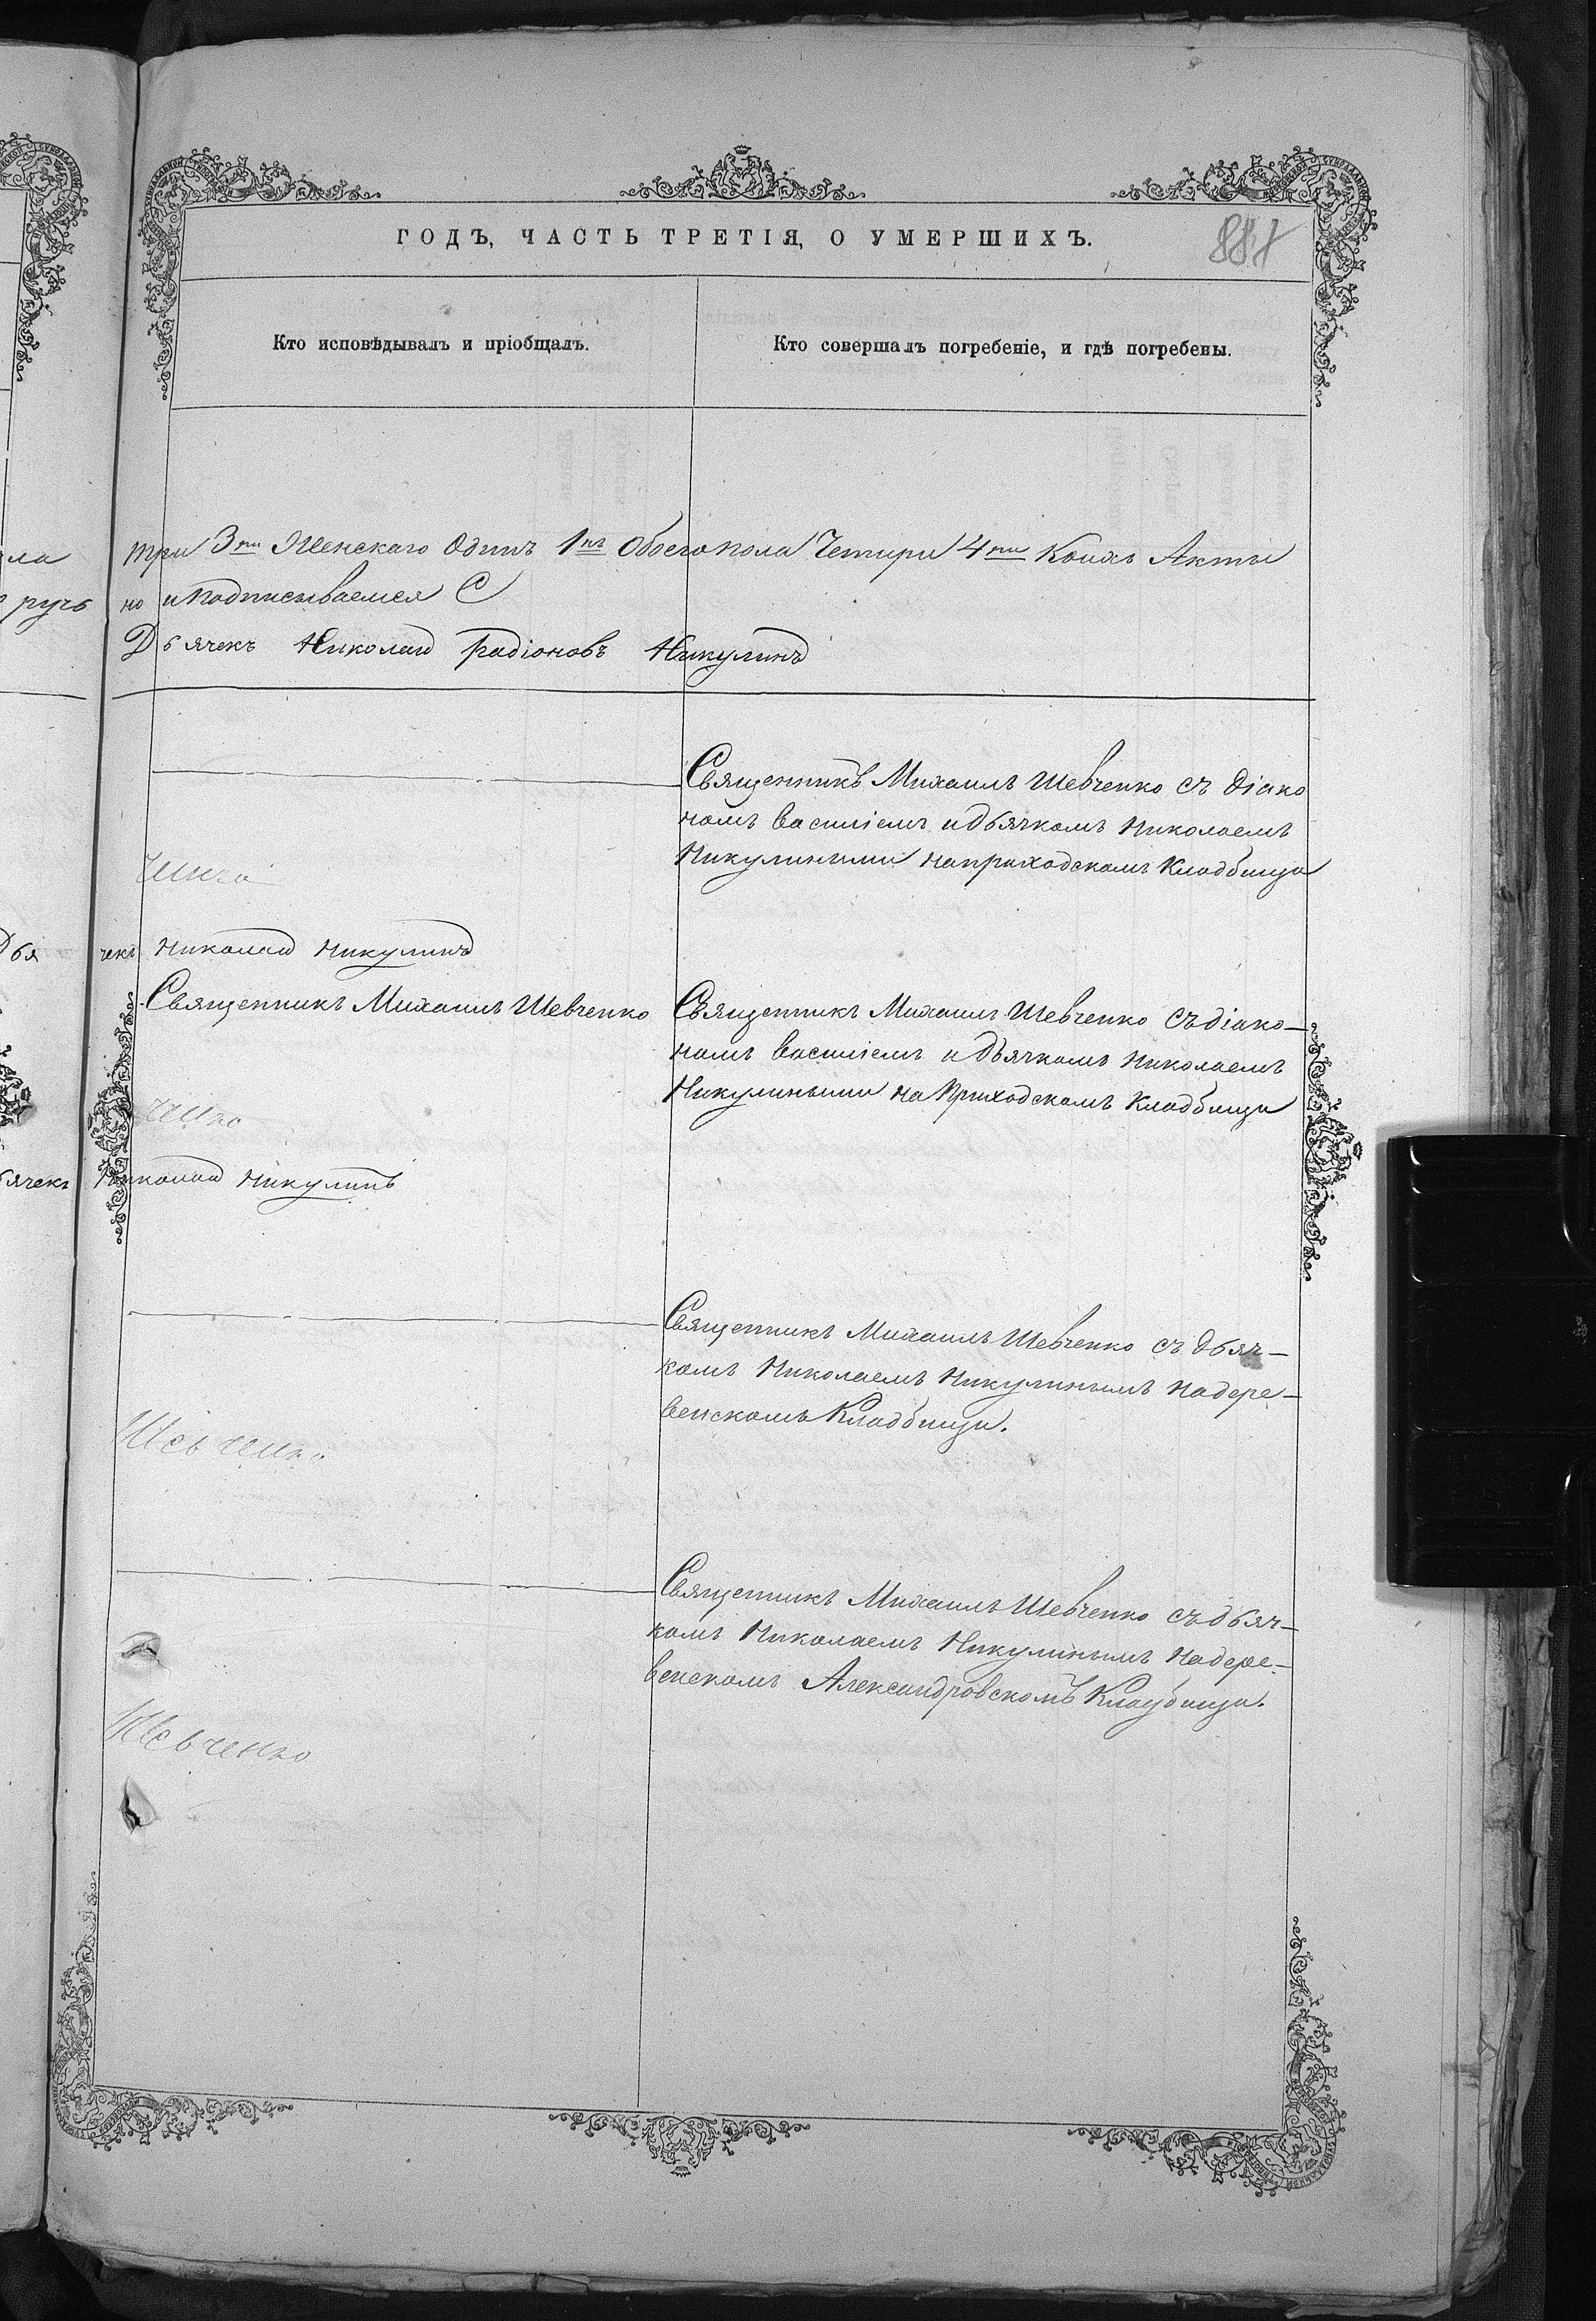 ГОДЪ, ЧАСТЬ ТРЕТІЯ, О УМЕРШИХЪ.
Кто исповѣдывалъ и пріобщалъ.
Кто совершалъ погребеніе, и гдѣ погребены.
ла три 3ти Женскаго Одинъ 1нъ Обоего пола Четыри 4ри Коихъ Акты
ручь но и подписываемся
Дьячекъ Николай радіоновъ Никулинъ
Священникъ Михаилъ Шевченко съ діако
номъ василіемъ и дьячкомъ Николаемъ
Никулиными на приходскомъ Кладбищи
ченко
Дья чекъ Николай Никулинъ
Священникъ Михаилъ Шевченко
Священникъ Михаилъ Шевченко съ діако-
номъ василіемъ и дьячкомъ Николаемъ
Никулиными на Приходскомъ Кладбищи
ченко
ячекъ Николай Никулинъ
Священникъ Михаилъ Шевченко съ дьяч-
комъ Николаемъ Никулинымъ на дере-
венскомъ Кладбищи.
Шевченко
Священникъ Михаилъ Шевченко съ дьяч-
комъ Николаемъ Никулинымъ на дере-
венскомъ Александровскомъ Кладбищи.
Шевченко